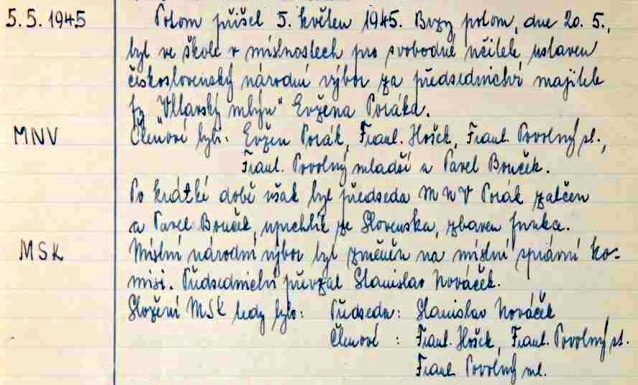 5.5.1945 Potom přišel 5. květen 1945. Brzy potom, dne 20. 5.,
byl ve škole v místnostech pro svobodné učitele, ustaven
československý národní výbor za předsednictví majitele
fy „Vltavský mlýn“ Evžena Poráka.
MNV Členové byli: Evžen Porák, Frant. Hošek, Frant. Povolný st.,
Frant. Povolný mladší a Pavel Bouček.
Po krátké době však byl předseda MNV Porák zatčen
a Pavel Bouček, uprchlík ze Slovenska, zbaven funkce.
MSK Místní národní výbor byl změněn na místní správní ko-
misi. Předsednictví převzal Stanislav Nováček.
Složení MSK tedy bylo: Předseda: Stanislav Nováček
Členové : Frant. Hošek, Frant. Povolný st.
Frant. Povolný ml.